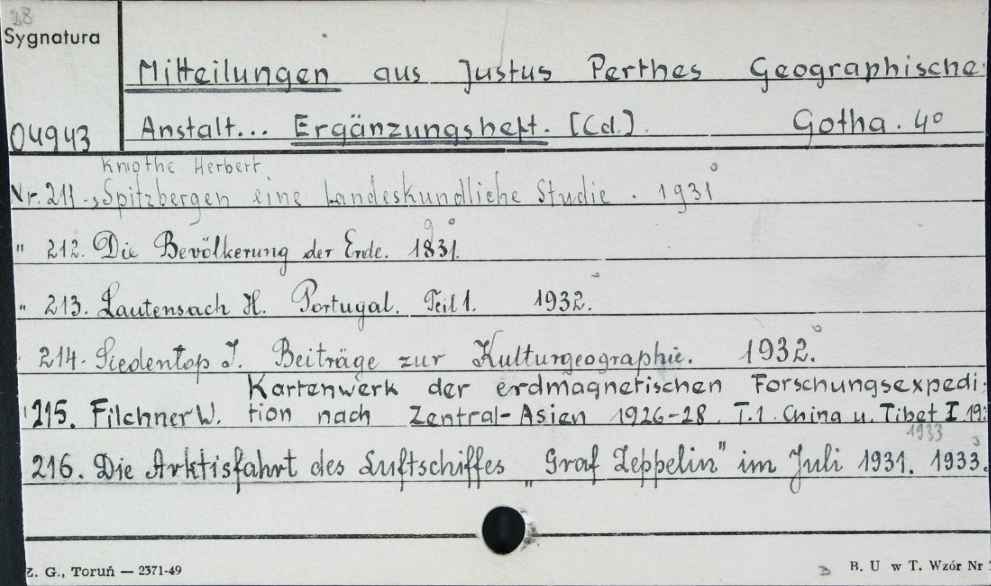 28
Sygnatura
Mitteilungen aus Justus Perthes Geographische
04943 Anstalt... Ergänzungsheft. [Cd.]. Gotha. 4°
Knothe Herbert
Nr. 211., Spitzbergen eine Landeskundliche Studie. 1931
" 212. Die Bevölkerung der Erde. 1831.
9
" 213. Lautensach H. Portugal. Teil 1. 1932.
214. Siedentop J. Beiträge zur Kulturgeographie. 1932.
Kartenwerk der erdmagnetischen Forschungsexpedi-
215. Filchner W. tion nach Zentral-Asien 1926-28. T.1. China u. Tibet I 19
1933
216. Die Arktisfahrt des Luftschiffes "Graf Zeppelin" im Juli 1931. 1933.
Z. G., Toruń — 2371-49
B. U w T. Wzór Nr